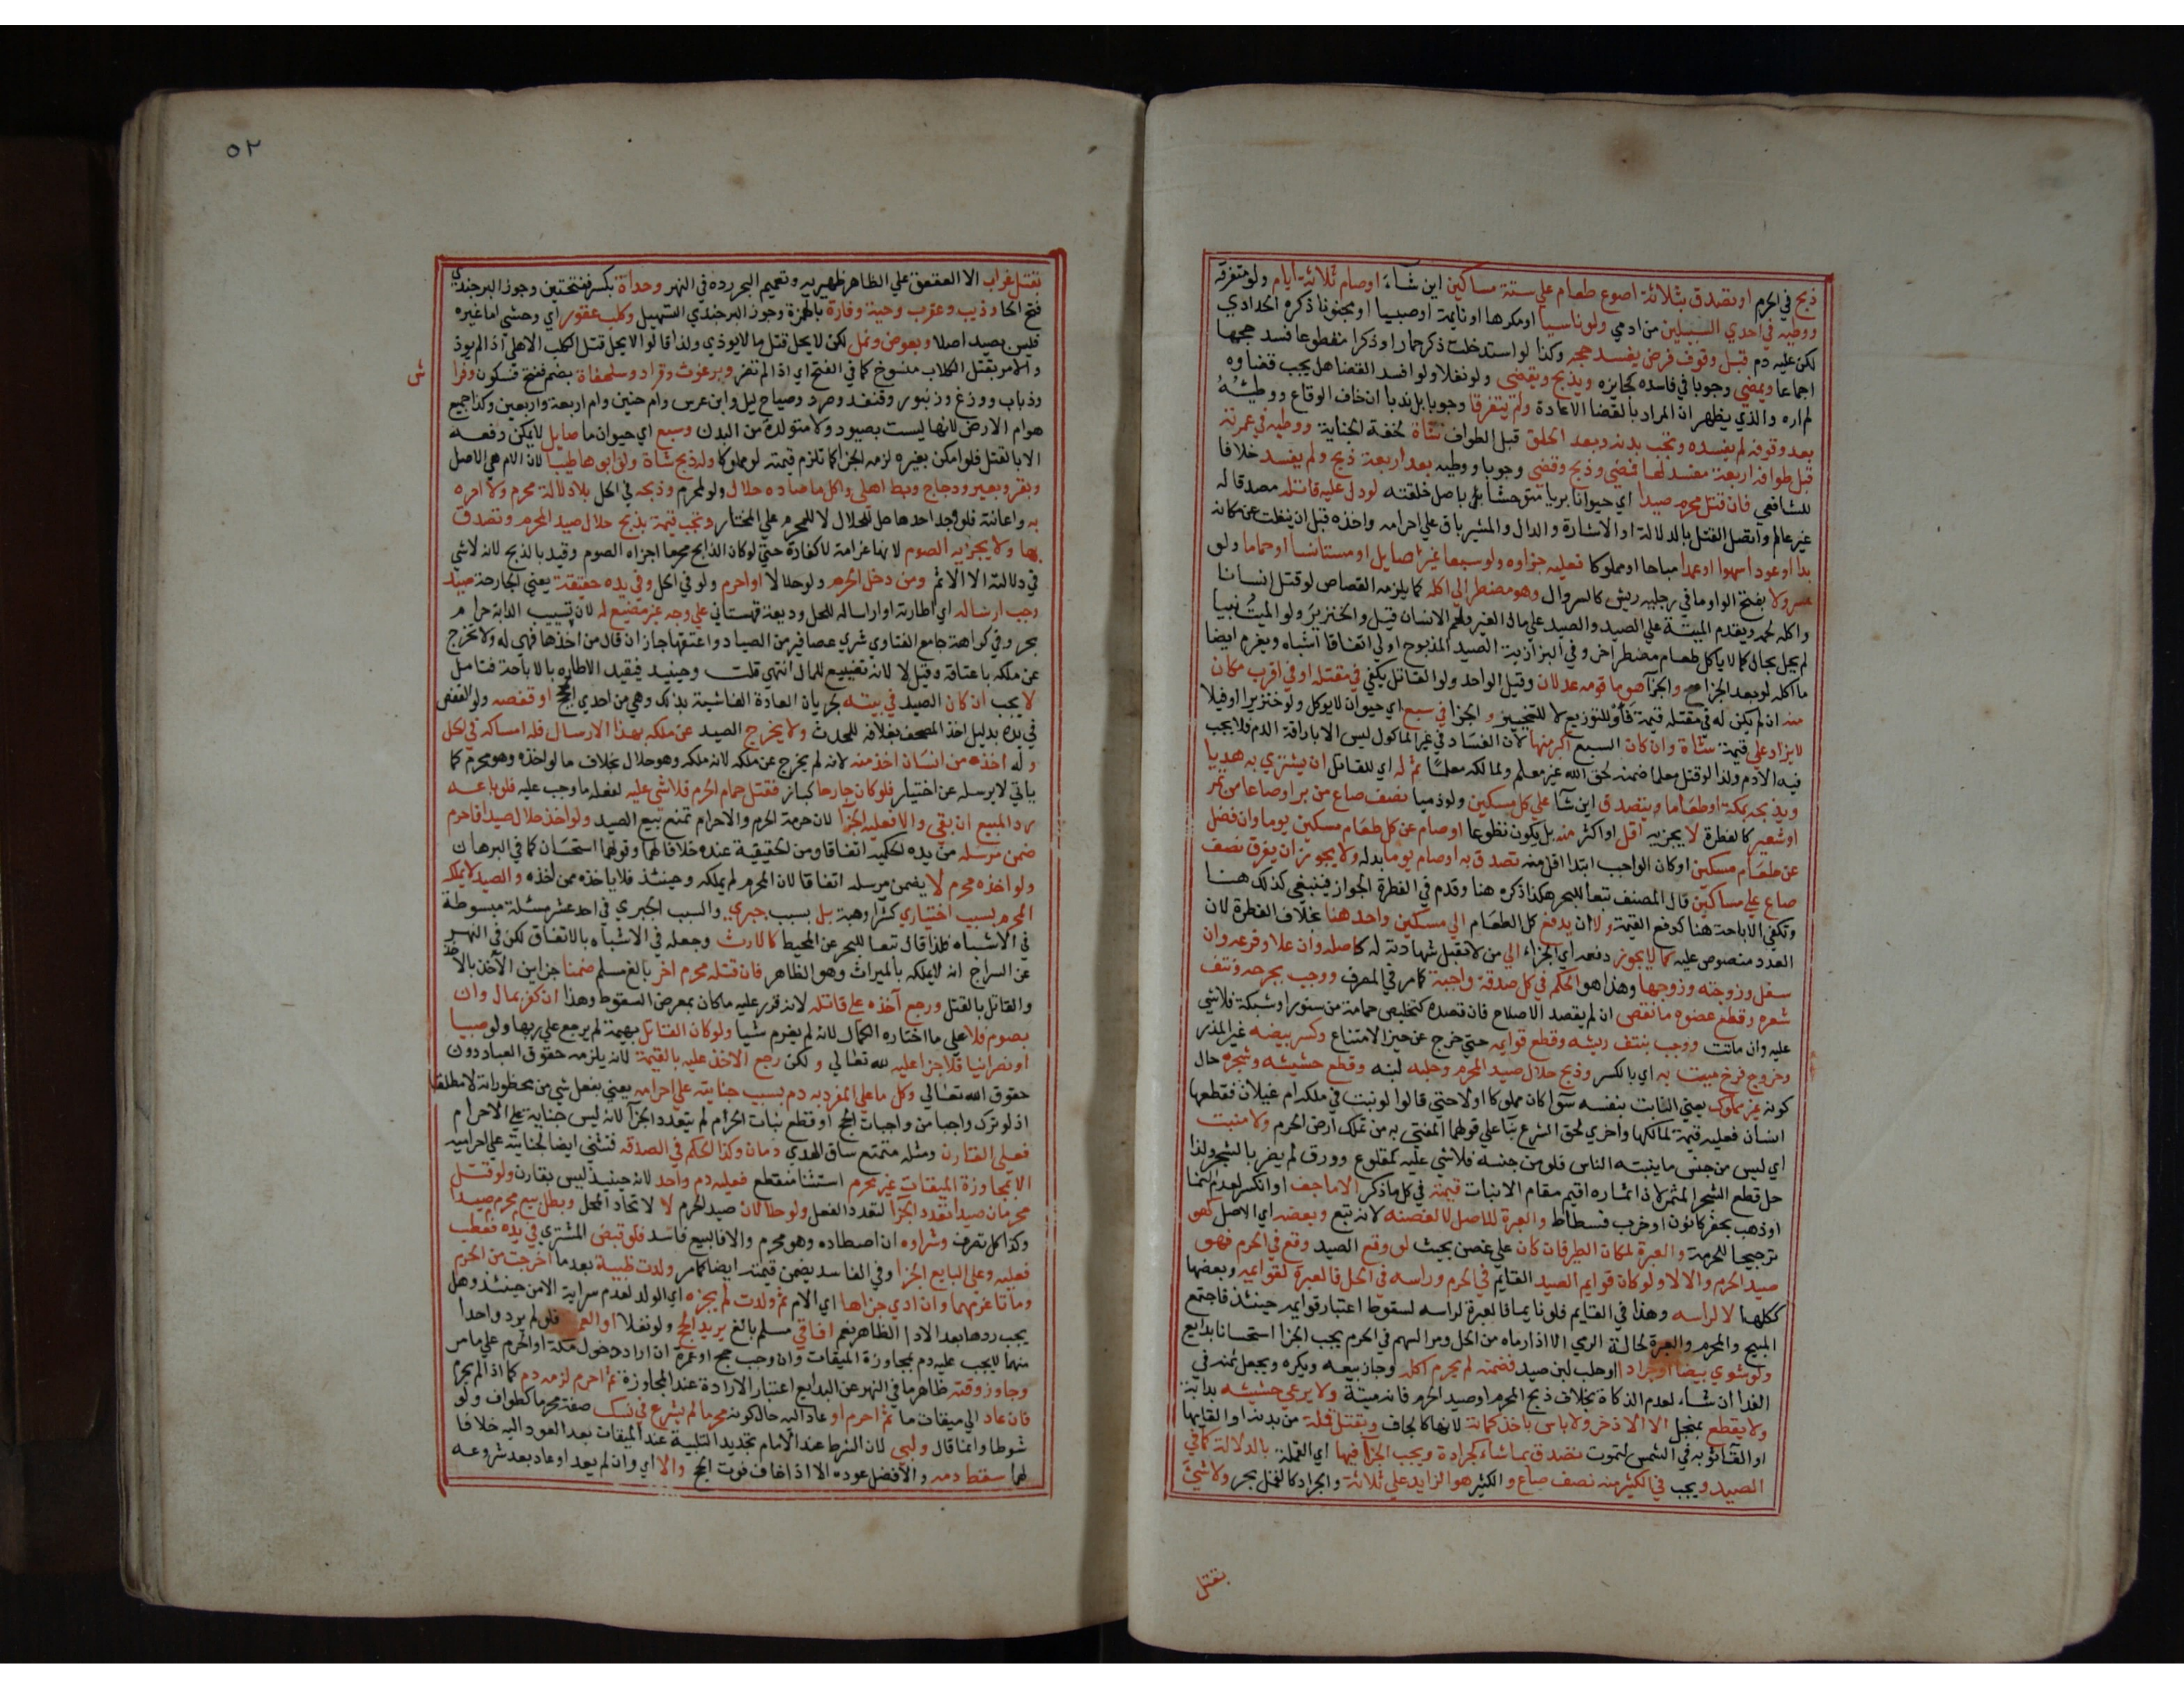 ذبح في الحرم او تصدق بثلاثة اصوع طعام علي ستة مساكين اين شاء او صام ثلاثة ايام ولو متفرقة
ووطيه في احدي السبيلين من ادمي ولو ناسيا او مكرها او نايمة او صبيا او مجنونا ذكره الحدادي
لكن عليه دم قبل وقوف فرض يفسد حجه وكذا لو استدخلت ذكر حمار او ذكرا مقطوعا فسد حجها
اجماعا ويمضي وجوبا في فاسده كجايزه ويذبح ويقضي ولو نفلا ولو افسد القضا هل يجب قضاوه
لم اره والذي يظهر ان المراد بالقضا الاعادة ولم يتفرقا وجوبا بل ندبا ان خاف الوقاع ووطيه
بعد وقوفه لم يفسده وتجب بدنة وبعد الحلق قبل الطواف شاة لخفة الجناية ووطيه في عمرته
قبل طوافه اربعة مفسد لها فمضي وذبح وقضي وجوبا ووطيه بعد اربعة ذبح ولم يفسد خلافا
للشافعي فان قتل محرم صيدا اي حيوانا بريا متوحشا باصل خلقته او دل عليه قاتله مصدقا له
غير عالم واتصل القتل بالدلالة او الاشارة والدال والمشير باق علي احرامه واخذه قبل ان ينفلت عن مكانه
بدا او عودا سهوا او عمدا مباحا او مملوكا فعليه جزاوه ولو سبعا غير صايل او مستانسا او حماما ولو
مسرولا بفتح الواو ما في رجليه ريش كالسروال وهو مضطر الي اكله كما يلزمه القصاص لو قتل انسانا
واكله لحمه ويقدم الميتة علي الصيد والصيد علي مال الغير ولحم الانسان قيل والخنزير ولو الميت نبيا
لم يحل بحال كما لا ياكل طعام مضطر اخر وفي البزازية الصيد المذبوح اولي اتفاقا اشباه ويغرم ايضا
ما اكله لو بعد الجزا و الجزا هو ما قومه عدلان وقيل الواحد ولو القاتل يكفي في مقتله او في اقرب مكان
منه ان لم يكن له في مقتله قيمة فأو للتوزيع لا للتخيير و الجزا في سبع اي حيوان لا يوكل ولو خنزيرا او فيلا
لا يزاد علي قيمة شاة وان كان السبع اكبر منها لان الفساد في غير الماكول ليس الا باراقة الدم فلا يجب
فيه الا دم ولذا لو قتل معلما ضمنه لحق الله غير معلم ولمالكه معلما ثم له اي للقاتل ان يشتري به هديا
ويذبحه بمكة او طعاما ويتصدق اين شا علي كل مسكين ولو ذميا نصف صاع من بر او صاعا من تمر
او شعير كالفطرة لا يجزيه اقل او اكثر منه بل يكون تطوعا او صام عن كل طعام مسكين يوما وان فضل
عن طعام مسكين او كان الواجب ابتدا اقل منه تصدق به او صام يوما بدله ولا يجوز ان يفرق نصف
صاع علي مساكين قال المصنف تبعا للبحر هكذا ذكره هنا وقدم في الفطرة الجواز فينبغي كذلك هنا
وتكفي الاباحة هنا كدفع القيمة ولا ان يدفع كل الطعام الي مسكين واحد هنا بخلاف الفطرة لان
العدد منصوص عليه كما لا يجوز دفعه اي الجزاء الي من لا تقبل شهادته له كاصله وان علا وفرعه وان
سفل وزوجته وزوجها وهذا هو الحكم في كل صدقة واجبة كما مر في المصرف ووجب بجرحه ونتف
شعره وقطع عضوه ما نقص ان لم يقصد الاصلاح فان قصده كتخليص حمامة من سنور او شبكة فلا شي
عليه وان ماتت ووجب بنتف ريشه وقطع قوايمه حتي خرج عن حيز الامتناع وكسر بيضه غير المذر
وخروج فرخ ميت به اي بالكسر وذبح حلال صيد المحرم وحلبه لبنه وقطع حشيشه وشجره حال
كونه غير مملوك يعني النابت بنفسه سوا كان مملوكا او لا حتي قالوا لو نبت في ملكه ام غيلان فقطعها
انسان فعليه قيمة لمالكها واخري لحق الشرع بنا علي قولهما المفتي به من تملك ارض الحرم ولا منبت
اي ليس من جنس ما ينبته الناس فلو من جنسه فلا شي عليه كمقلوع وورق لم يضر بالشجر ولذا
حل قطع الشجر المثمر لان اثماره اقيم مقام الانبات قيمته في كل ما ذكر الا ما جف او انكسر لعدم النما
او ذهب بحفر كانون او ضرب فسطاط والعبرة للاصل لا لغصنه لانه تبع وبعضه اي الاصل كهو
ترجيحا للحرمة والعبرة لمكان الطير فان كان علي غصن بحيث لو وقع الصيد وقع في الحرم فهو
صيد الحرم والا لا ولو كان قوايم الصيد القايم في الحرم وراسه في الحل فالعبرة لقوايمه وبعضها
ككلها لا لراسه وهذا في القايم فلو نايما فالعبرة لراسه لسقوط اعتبار قوايمه حينئذ فاجتمع
المبيح والمحرم والعبرة لحالة الرمي الا اذا رماه من الحل ومر السهم في الحرم يجب الجزا استحسانا بدايع
ولو شوي بيضا او جرادا او حلب لبن صيد فضمنه لم يحرم اكله وجاز بيعه ويكره ويجعل ثمنه في
الفدا ان شاء لعدم الذكاة بخلاف ذبح المحرم او صيد الحرم فانه ميتة ولا يرعي حشيشه بدابة
ولا يقطع بمنجل الا الاذخر ولا باس باخذ كماته لانها كالجاف وبقتل قملة من بدنه او القايها
او القا ثوبه في الشمس لتموت تصدق بما شاء كجرادة ويجب الجزا فيها اي القملة بالدلالة كما في
الصيد ويجب في الكثير منه نصف صاع و الكثير هو الزايد علي ثلاثة والجراد كالقمل بحر ولا شي
بقتل
٥٢
بقتل غراب الا العقعق علي الظاهر ظهيريه وتعميم البحر رده في النهر وحداة بكسر ففتحتين وجوز البرجندي
فتح الحا وذيب وعقرب وحية وفارة بالهمزة وجوز البرجندي التسهيل وكلب عقور اي وحشي اما غيره
فليس بصيد اصلا وبعوض ونمل لكن لا يحل قتل ما لا يوذي ولذا قالوا لا يحل قتل الكلب الاهلي اذا لم يوذ
والامر بقتل الكلاب منسوخ كما في الفتح اي اذا لم تضر وبرغوث وقراد وسلحفاة بضم ففتح فسكون وفرا
ش
وذباب ووزغ وزنبور وقنفذ وصرد وصياح ليل وابن عرس وام حنين وام اربعة واربعين وكذا جميع
هوام الارض لانها ليست بصيود ولا متولدة من البدن وسبع اي حيوان ما صايل لا يمكن دفعه
الا بالقتل فلو امكن بغيره لزمه الجزا كما تلزم قيمته لو مملوكا وله ذبح شاة ولو ابوها ظبيا لان الام هي الاصل
وبقر وبعير ودجاج وبط اهلي واكل ما صاده حلال ولو لمحرم وذبحه في الحل بلا دلالة محرم ولا امره
به واعانته فلو وجد احدها حل للحلال لا للمحرم علي المختار وتجب قيمته بذبح حلال صيد الحرم وتصدق
بها ولا يجزيه الصوم لانها غرامة لا كفارة حتي لو كان الذابح محرما اجزاه الصوم وقيد بالذبح لانه لا شي
في دلالته الا الاثم ومن دخل الحرم ولو حلالا او احرم ولو في الحل وفي يده حقيقة يعني الجارحة صيد
وجب ارساله اي اطارته او ارساله للحل وديعة قهستاني علي وجه غير مضيع له لان تسييب الدابة حرام
بحر وفي كراهة جامع الفتاوي شري عصافير من الصياد واعتقها جاز ان قال من اخذها فهي له ولا تخرج
عن ملكه باعتاقه وقيل لا لانه تضييع للمال انتهي قلت وحينيذ فيقيد الاطاره بالاباحة فتامل
لا يجب ان كان الصيد في بيته لجريان العادة الفاشية بذلك وهي من احدي الحجج او قفصه ولو القفص
في يده بدليل اخذ المصحف بغلافه للمحدث ولا يخرج الصيد عن ملكه بهذا الارسال فله امساكه في الحل
و له اخذه من انسان اخذ منه لانه لم يخرج عن ملكه لانه ملكه وهو حلال بخلاف ما لو اخذه وهو محرم كما
ياتي لا يرسله عن اختيار فلو كان جارحا كباز فقتل حمام الحرم فلا شي عليه لفعله ما وجب عليه فلو باعه
رد المبيع ان بقي والا فعليه الجزا لان حرمة الحرم والاحرام تمنع بيع الصيد ولو اخذ حلال صيدا فاحرم
ضمن مرسله من يده الحكمية اتفاقا ومن الحقيقية عنده خلافا لهما وقولهما استحسان كما في البرهان
ولو اخذه محرم لا يضمن مرسله اتفاقا لان المحرم لم يملكه وحينئذ فلا ياخذه ممن اخذه والصيد لا يملكه
المحرم بسبب اختياري كشرا وهبة بل بسبب جبري والسبب الجبري في احد عشر مسئلة مبسوطة
في الاشباه فلذا قال تبعا للبحر عن المحيط كالارث وجعله في الاشباه بالاتفاق لكن في النهر
عن السراج انه لا يملكه بالميراث وهو الظاهر فان قتله محرم اخر بالغ مسلم ضمنا جزاين الآخذ بالاخذ
والقاتل بالقتل ورجع آخذه علي قاتله لانه قرر عليه ما كان بمعرض السقوط وهذا ان كفر بمال وان
بصوم فلا علي ما اختاره الكمال لانه لم يغرم شيا ولو كان القاتل بهيمة لم يرجع علي ربها ولو صبيا
او نصرانيا فلا جزا عليه لله تعالي و لكن رجع الاخذ عليه بالقيمة لانه يلزمه حقوق العباد دون
حقوق الله تعالي وكل ما علي المفرد به دم بسبب جنايته علي احرامه يعني بفعل شي من محظوراته لا مطلقا
اذ لو ترك واجبا من واجبات الحج او قطع نبات الحرام لم يتعدد الجزا لانه ليس جناية علي الاحرام
فعلي القارن ومثله متمتع ساق الهدي دمان وكذا الحكم في الصدقة فتثني ايضا لجنايته علي احراميه
الا بمجاوزة الميقات غير محرم استثنا منقطع فعليه دم واحد لانه حينيذ ليس بقارن ولو قتل
محرمان صيدا تعدد الجزا لتعدد الفعل ولو حلالان صيد الحرم لا لاتحاد المحل وبطل بيع محرم صيدا
وكذا كل تصرف وشراوه ان اصطاده وهو محرم والا فالبيع فاسد فلو قبض المشتري في يده فعطب
فعليه وعلي البايع الجزا وفي الفاسد يضمن قيمته ايضا كما مر ولدت ظبية بعد ما اخرجت من الحرم
وماتا غرمهما وان ادي جزاها اي الام ثم ولدت لم يجزه اي الولد لعدم سراية الامن حينئذ وهل
يجب ردها بعد الادا الظاهر نعم افاقي مسلم بالغ يريد الحج ولو نفلا او العمرة فلو لم يرد واحدا
منهما لا يجب عليه دم بمجاوزة الميقات وان وجب حج او عمرة ان اراد دخول مكة او الحرم علي ما مر
وجاوز وقته ظاهر ما في النهر عن البدايع اعتبار الارادة عند المجاوزة ثم احرم لزمه دم كما اذا لم يحرم
فان عاد الي ميقات ما ثم احرم او عاد اليه حال كونه محرما لم يشرع في نسك صفة محرما كطواف ولو
شوطا وانما قال ولبي لان الشرط عند الامام تجديد التلبية عند الميقات بعد العود اليه خلافا
لهما سقط دمه والافضل عوده الا اذا خاف فوت الحج والا اي وان لم يعد او عاد بعد شروعه